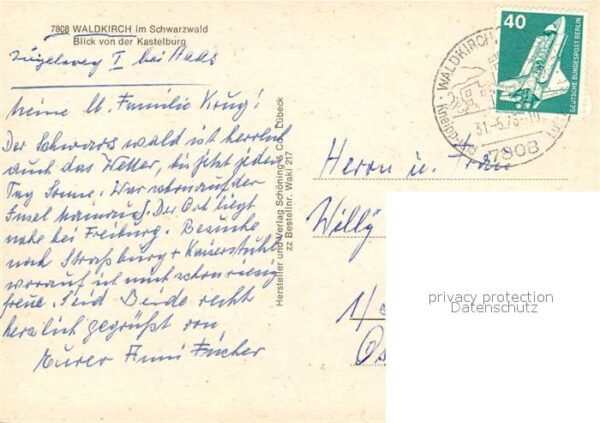 7808 WALDKIRCH im Schwarzwald
Blick von der Kastelburg
I bei Haas
Meine lb. Familie Krug!
Der Schwarzwald ist herrlich
auch das Wetter, bis jetzt jeden
Tag Sonne. War schon auf der
Insel Mainau. Der Ort liegt
nahe bei Freiburg. Besuche
noch Straßburg + Kaiserstuhl
worauf ich mich schon riesig
freue. Seid Beide recht
herzlich gegrüßt von
Eurer Anni Fischer
Hersteller und Verlag Schöning & Co., Lübeck
zz Bestellnr. Waki 217
WALDKIRCH
7808
40
DEUTSCHE BUNDESPOST BERLIN
Herrn u. Frau
Willy
privacy protection
Datenschutz